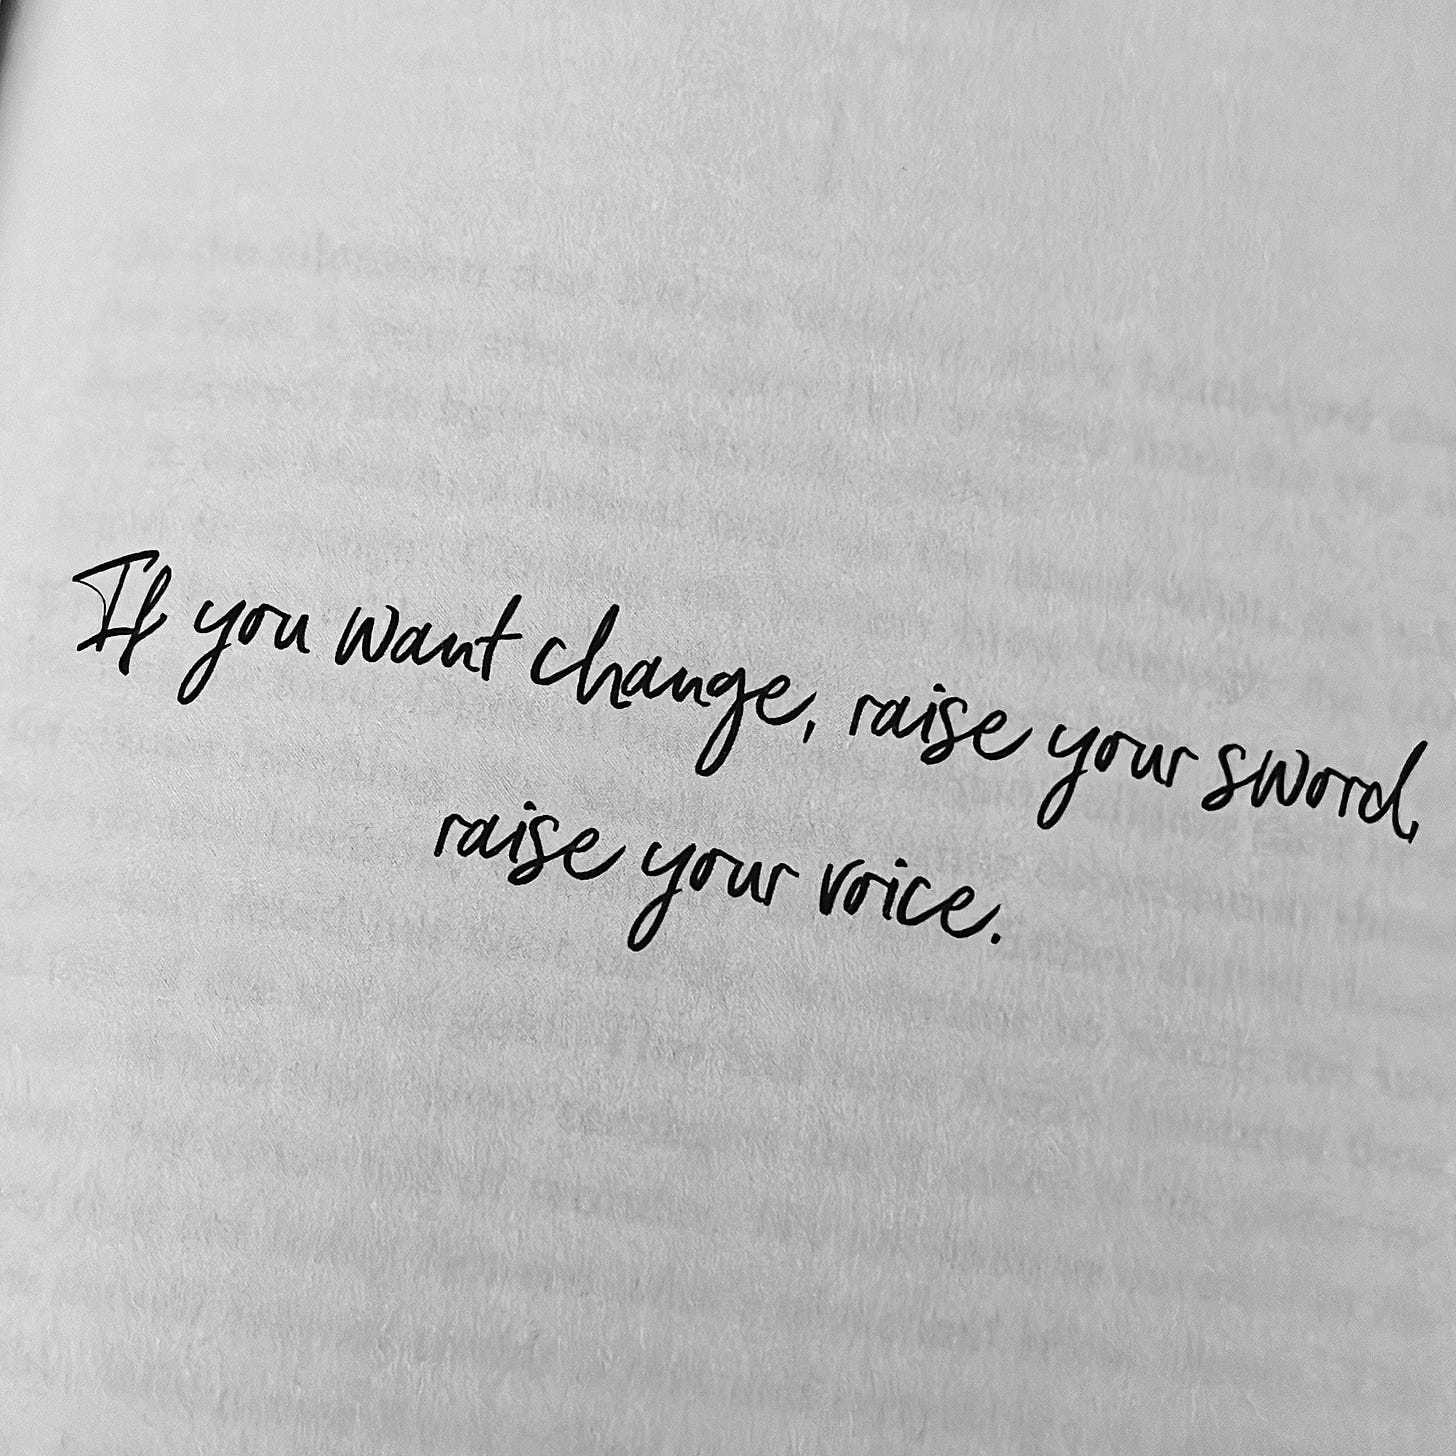 If you want change, raise your sword,
raise your voice.